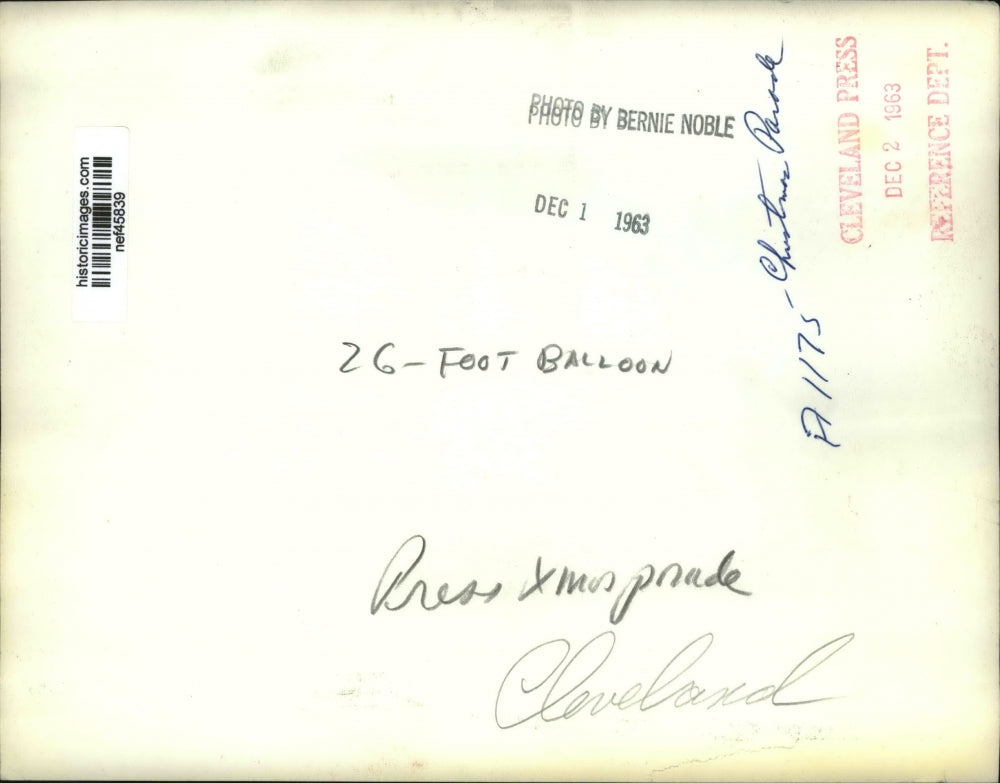 PHOTO BY BERNIE NOBLE
DEC 1 1963
historicimages.com
nef45839
26-FOOT BALLOON
Press Xmas parade
Cleveland
A 1175 - Christmas Parade
CLEVELAND PRESS
DEC 2 1963
REFERENCE DEPT.